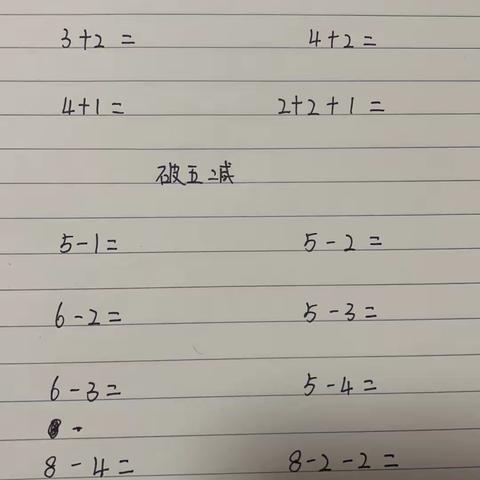 3+2 = 4+2 =
4+1 = 2+2+1 =
破五减
5-1= 5-2 =
6-2= 5-3=
6-3= 5-4=
8-4= 8-2-2=